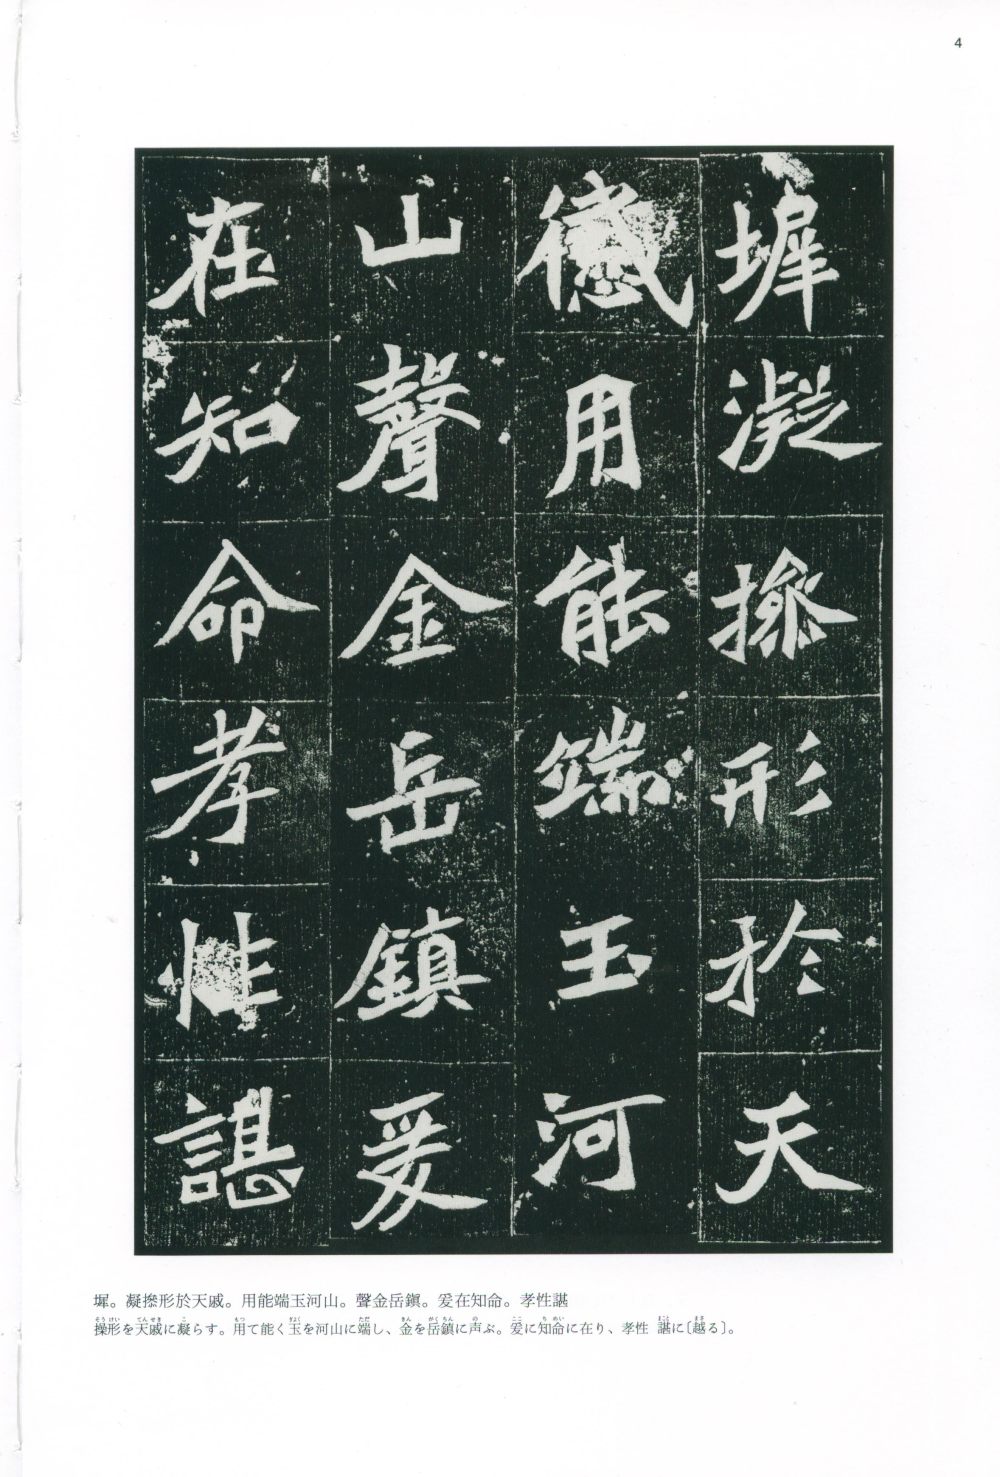 4
墀凝撡形於天
慼用能端玉河
山聲金岳鎮爰
在知命孝性諶
墀。凝撡形於天戚。用能端玉河山。聲金岳鎭。爰在知命。孝性諶
操形を天戚に凝らす。用て能く玉を河山に端し、金を岳鎮に声ぶ。爰に知命に在り、孝性 諶に〔越る〕。